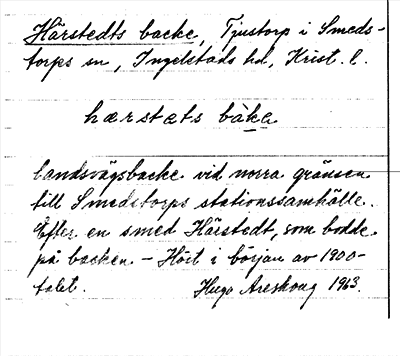 Härstedts backe, Tjustorp i Smeds-
torps sn, Ingelstads hd, Krist. l.
hærstæts bàke
Landsvägsbacke vid norra gränsen
till Smedstorps stationssamhälle.
Efter en smed Härstedt, som bodde
på backen. – Hört i början av 1900-
talet. Hugo Areskoug 1963.